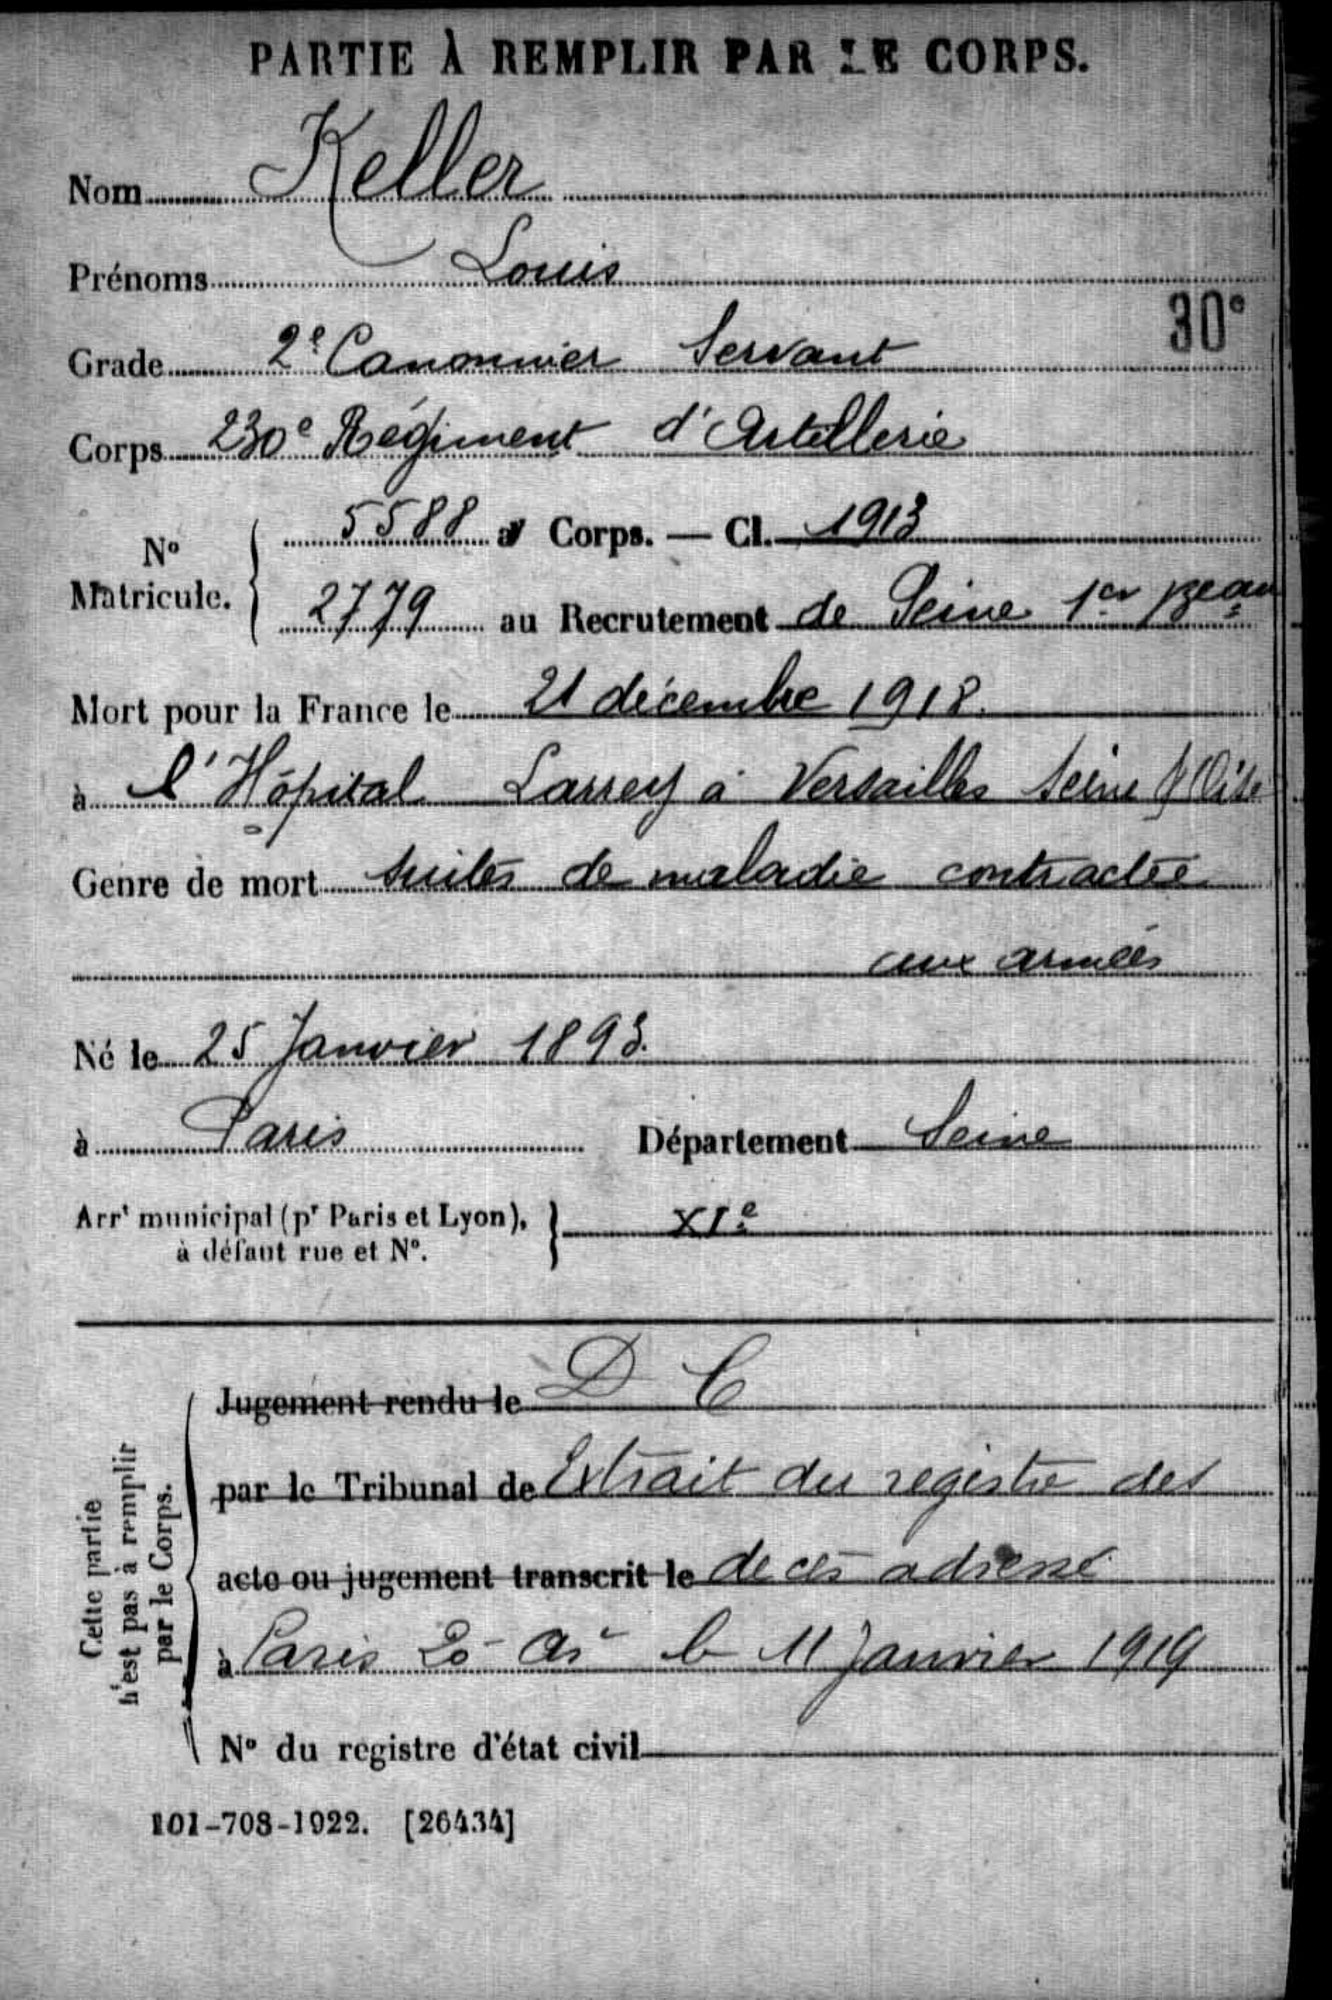 PARTIE À REMPLIR PAR LE CORPS.
Nom Keller
Prénoms Louis
30e
Grade 2e Canonnier Servant
Corps 230e Régiment d'Artillerie
No Matricule. { 5588 au Corps. — Cl. 1913
2779 au Recrutement de Seine 1er Beau
Mort pour la France le 21 décembre 1918.
à l'Hôpital Larrey à Versailles Seine & Oise
Genre de mort suites de maladie contractée
aux armées
Né le 25 Janvier 1893.
à Paris Département Seine
Arrt municipal (pr Paris et Lyon), } XIe
à défaut rue et No.
Cette partie
n'est pas à remplir
par le Corps.
Jugement rendu le D C
par le Tribunal de Extrait du registre des
acte ou jugement transcrit le décès adressé
à Paris 20 Ar le 11 Janvier 1919
No du registre d'état civil
101-708-1922. [26434]